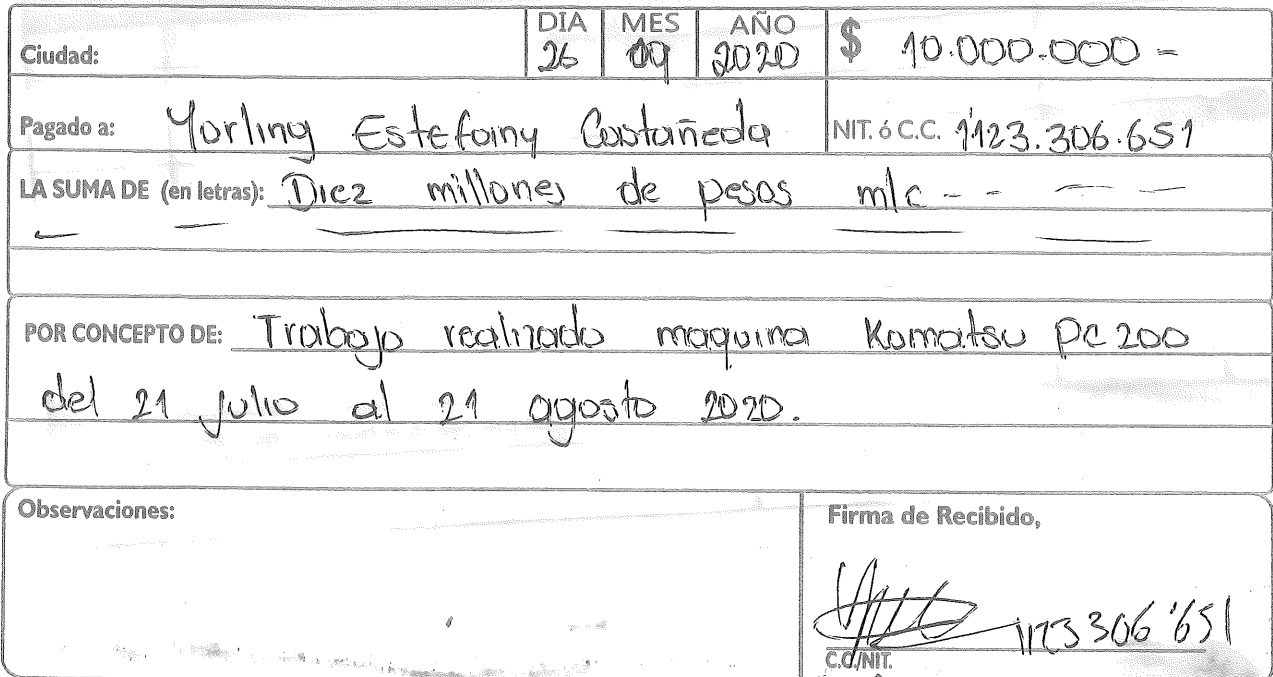 Ciudad: DIA MES AÑO $ 10.000.000 =
26 09 2020
Pagado a: Yorling Estefainy Castañeda NIT. ó C.C. 1'123.306.651
LA SUMA DE (en letras): Diez millones de pesos m/c - - - -
POR CONCEPTO DE: Trabajo realizado maquina Komatsu PC 200
del 21 julio al 21 agosto 2020.
Observaciones: Firma de Recibido,
1123306'651
C.C./NIT.